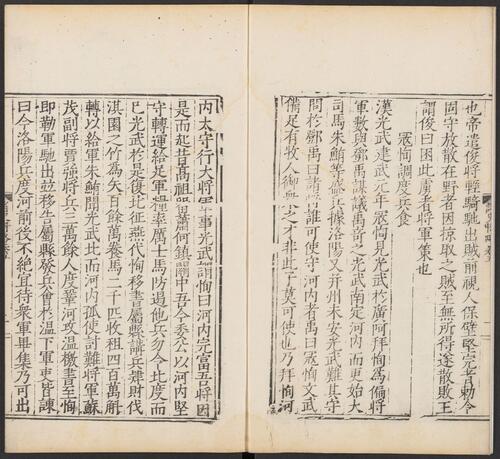 也帝遣俊將輕騎馳出賊前視人保壁堅完者勅令
固守放散在野者因掠取之賊至無所得遂散敗王
謂俊曰困此虜者將軍策也
寇恂調度兵食
漢光武建武元年寇恂見光武於廣阿拜恂爲偏將
軍數與鄧禹謀議禹奇之光武南定河内而更始大
司馬朱鮪等盛兵據洛陽又并州未安光武難其守
問於鄧禹曰諸將誰可使守河内者禹曰寇恂文武
備足有牧人御衆之才非此子莫可使也乃拜恂河
内太守行大將軍事光武謂恂曰河内完富吾將因
是而起昔髙祖留蕭何鎮關中吾今委公以河内堅
守轉運給足軍糧率厲士馬防遏他兵勿令北度而
已光武於是復北征燕代恂移書屬縣講兵肄財伐
淇園之竹爲矢百餘萬養馬二千匹收租四百萬斛
轉以給軍朱鮪聞光武北而河内孤使討難將軍蘇
茂副將賈強將兵三萬餘人度鞏河攻温檄書至恂
即勒軍馳出並移告屬縣發兵會於温下軍吏皆諫
曰今洛陽兵度河前後不絶宜待衆軍畢集乃可出